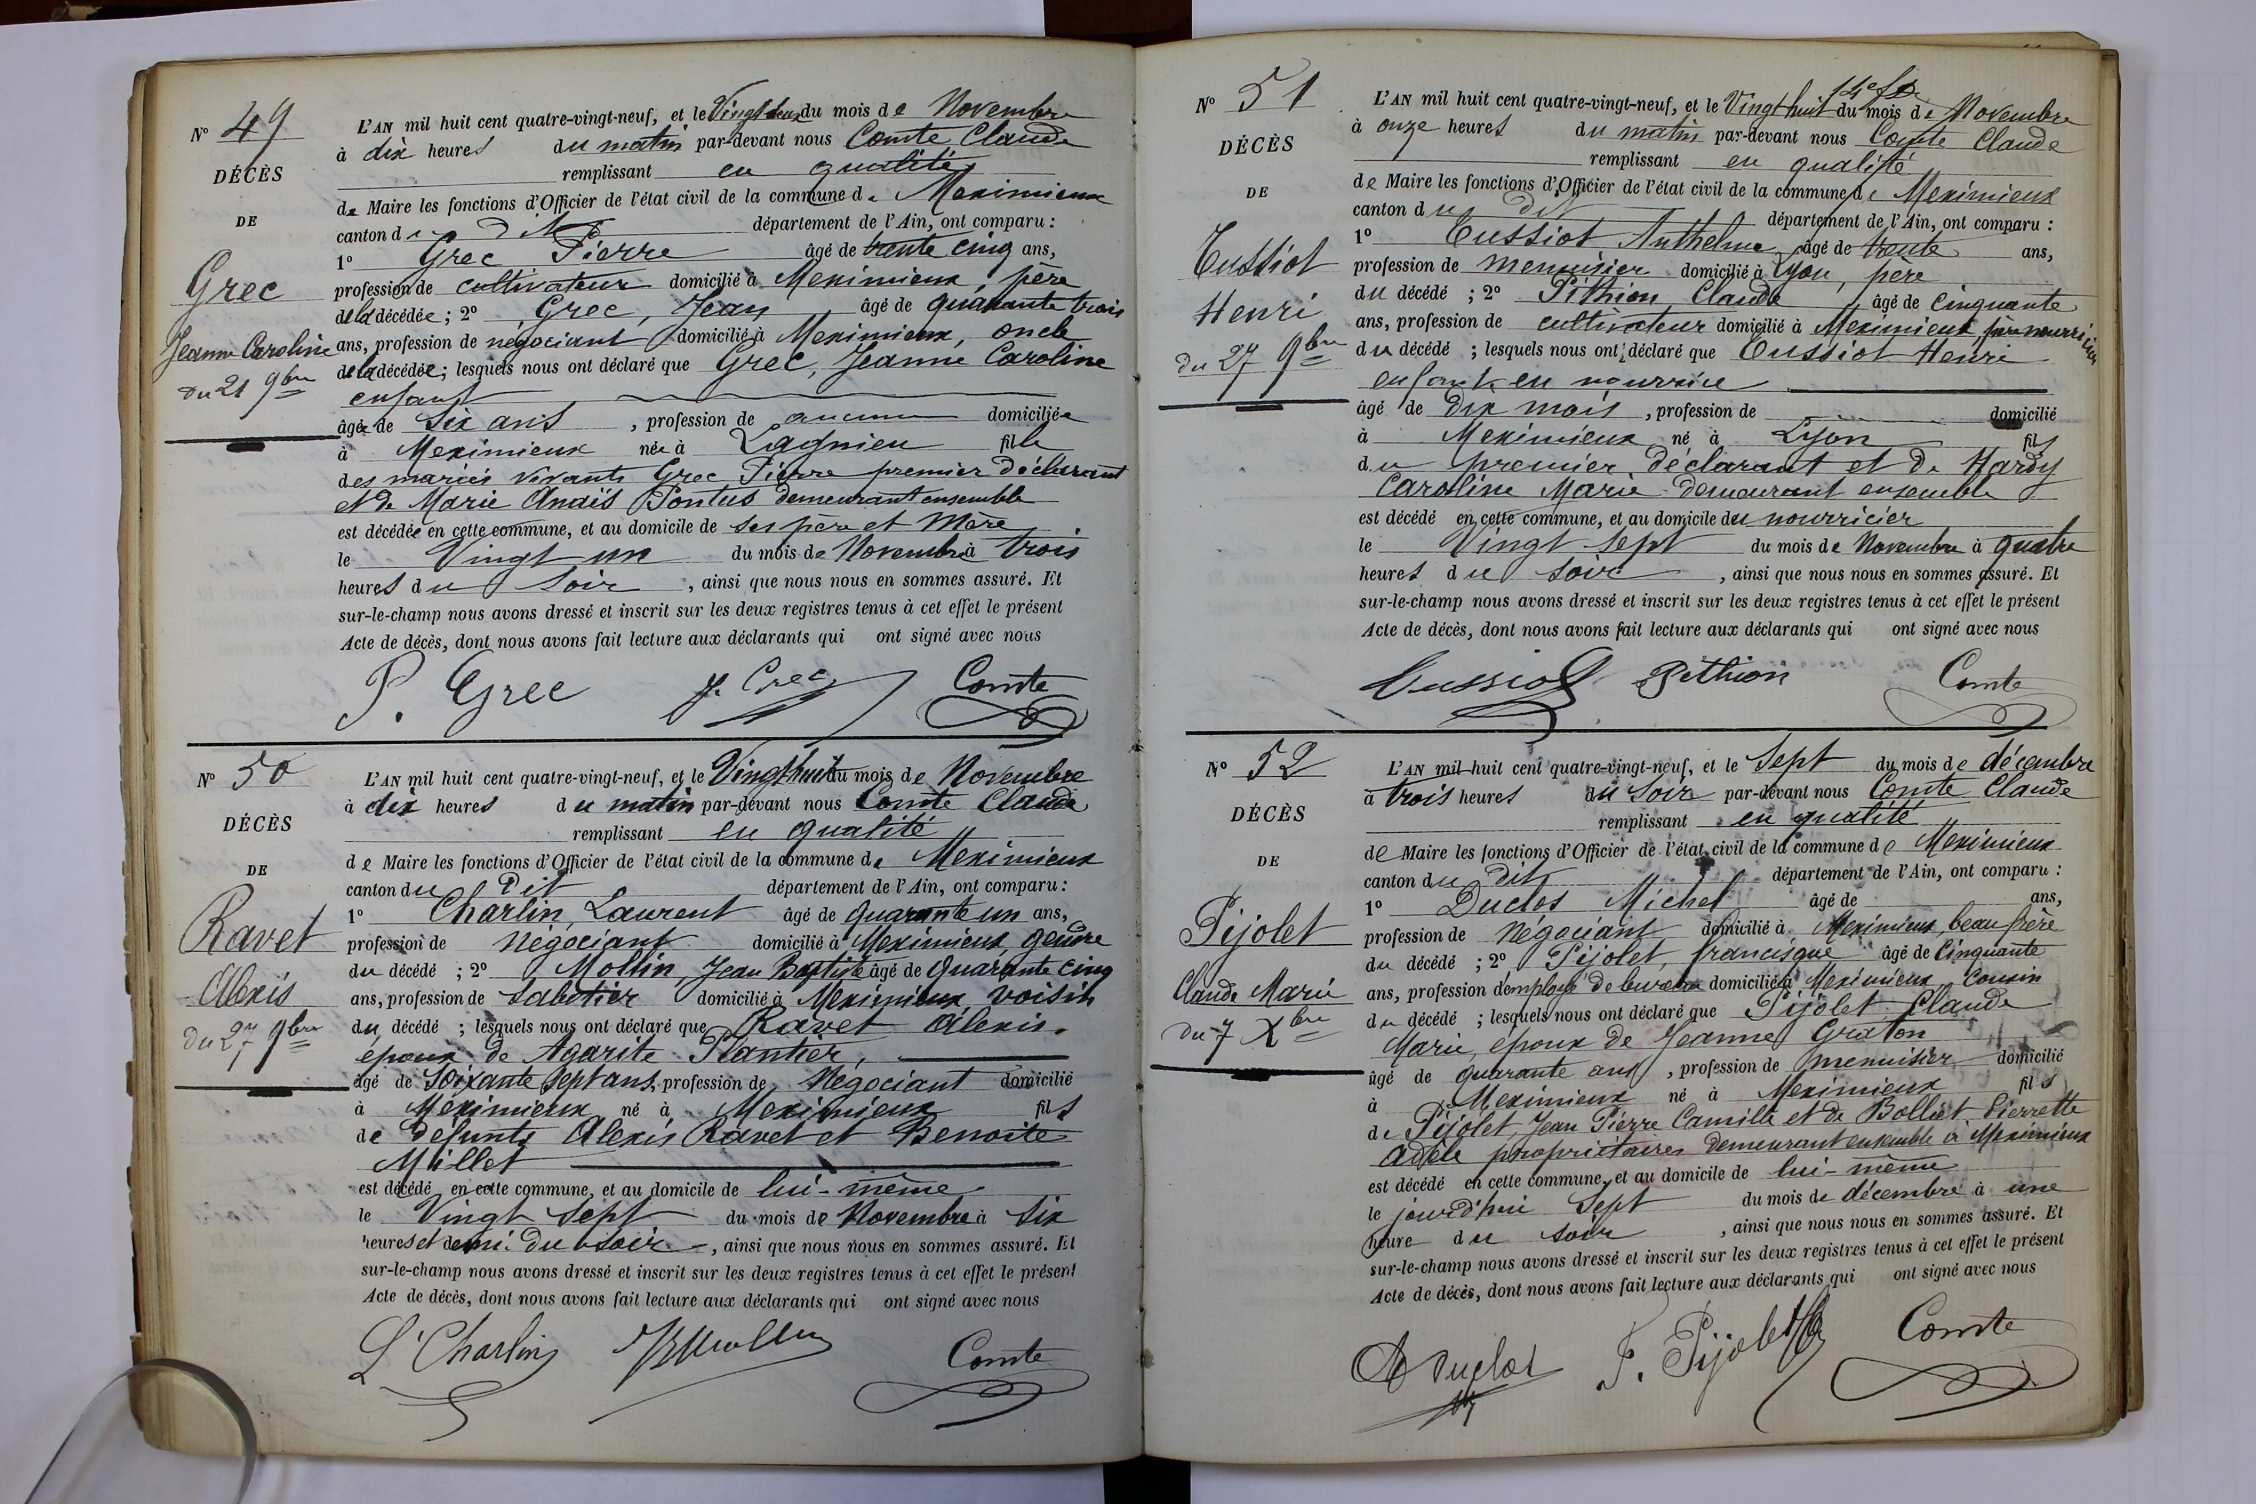 Nº 49
DÉCÈS
DE
Grec
Jeanne Caroline
du 21 9bre
L'AN mil huit cent quatre-vingt-neuf, et le Vingt deux du mois de Novembre
à dix heures du matin par-devant nous Comte Claude
remplissant en qualité
de Maire les fonctions d'Officier de l'état civil de la commune de Meximieux
canton du dit département de l'Ain, ont comparu :
1º Grec Pierre âgé de trente cinq ans,
profession de cultivateur domicilié à Meximieux, père
de la décédée ; 2º Grec, Jean âgé de quarante trois
ans, profession de négociant domicilié à Meximieux, oncle
de la décédée ; lesquels nous ont déclaré que Grec, Jeanne Caroline
enfant
âgée de six ans, profession de aucune domiciliée
à Meximieux née à Lagnieu fille
des mariés vivants Grec Pierre premier déclarant
et de Marie Anaïs Pontus demeurant ensemble
est décédée en cette commune, et au domicile de ses père et mère
le Vingt un du mois de Novembre à trois
heures du soir, ainsi que nous nous en sommes assuré. Et
sur-le-champ nous avons dressé et inscrit sur les deux registres tenus à cet effet le présent
Acte de décès, dont nous avons fait lecture aux déclarants qui ont signé avec nous
P. Grec J. Grec Comte
Nº 50
DÉCÈS
DE
Ravet
Alexis
du 27 9bre
L'AN mil huit cent quatre-vingt-neuf, et le Vingt huit du mois de Novembre
à dix heures du matin par-devant nous Comte Claude
remplissant en qualité
de Maire les fonctions d'Officier de l'état civil de la commune de Meximieux
canton du dit département de l'Ain, ont comparu :
1º Charlin Laurent âgé de quarante un ans,
profession de Négociant domicilié à Meximieux gendre
du décédé ; 2º Mollin, Jean Baptiste âgé de quarante cinq
ans, profession de sabotier domicilié à Meximieux voisin
du décédé ; lesquels nous ont déclaré que Ravet Alexis.
époux de Agarite Plantier,
âgé de soixante sept ans, profession de Négociant domicilié
à Meximieux né à Meximieux fils
de défunts Alexis Ravet et Benoite
Millet
est décédé en cette commune, et au domicile de lui-même
le Vingt sept du mois de Novembre à six
heures et demi du soir, ainsi que nous nous en sommes assuré. Et
sur-le-champ nous avons dressé et inscrit sur les deux registres tenus à cet effet le présent
Acte de décès, dont nous avons fait lecture aux déclarants qui ont signé avec nous
L. Charlin JBMollin Comte
Nº 51
DÉCÈS
DE
Cussiot
Henri
du 27 9bre
L'AN mil huit cent quatre-vingt-neuf, et le Vingt huit du mois de Novembre
à onze heures du matin par-devant nous Comte Claude
remplissant en qualité
de Maire les fonctions d'Officier de l'état civil de la commune de Meximieux
canton du dit département de l'Ain, ont comparu :
1º Cussiot Anthelme âgé de trente ans,
profession de menuisier domicilié à Lyon, père
du décédé ; 2º Pithion Claude âgé de cinquante
ans, profession de cultivateur domicilié à Meximieux père nourricier
du décédé ; lesquels nous ont déclaré que Cussiot Henri
enfant en nourrice
âgé de dix mois, profession de domicilié
à Meximieux né à Lyon fils
du premier déclarant et de Hardy
Caroline Marie demeurant ensemble
est décédé en cette commune, et au domicile du nourricier
le Vingt sept du mois de Novembre à quatre
heures du soir, ainsi que nous nous en sommes assuré. Et
sur-le-champ nous avons dressé et inscrit sur les deux registres tenus à cet effet le présent
Acte de décès, dont nous avons fait lecture aux déclarants qui ont signé avec nous
Cussiot Pithion Comte
Nº 52
DÉCÈS
DE
Pijolet
Claude Marie
du 7 Xbre
L'AN mil huit cent quatre-vingt-neuf, et le Sept du mois de décembre
à trois heures du soir par-devant nous Comte Claude
remplissant en qualité
de Maire les fonctions d'Officier de l'état civil de la commune de Meximieux
canton du dit département de l'Ain, ont comparu :
1º Duclos Michel âgé de ans,
profession de Négociant domicilié à Meximieux beau frère
du décédé ; 2º Pijolet, francisque âgé de cinquante
ans, profession d'employé de bureau domicilié à Meximieux Cousin
du décédé ; lesquels nous ont déclaré que Pijolet Claude
Marie, époux de Jeanne Graton
âgé de quarante ans, profession de menuisier domicilié
à Meximieux né à Meximieux fils
de Pijolet, Jean Pierre Camille et de Bolliet Pierrette
Adèle propriétaires demeurant ensemble à Meximieux
est décédé en cette commune, et au domicile de lui-même
le jourd'hui Sept du mois de décembre à une
heure du soir, ainsi que nous nous en sommes assuré. Et
sur-le-champ nous avons dressé et inscrit sur les deux registres tenus à cet effet le présent
Acte de décès, dont nous avons fait lecture aux déclarants qui ont signé avec nous
Duclos F. Pijolet Comte